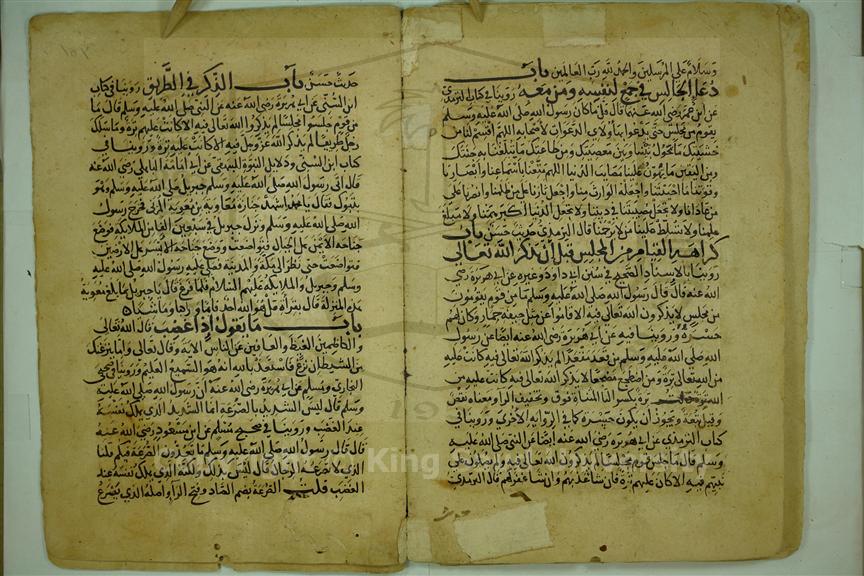 وسلام على المرسلين والحمد لله رب العالمين باب
دعاء الجالس في جمع لنفسه ومن معه روينا في كتاب الترمذي
عن ابن عمر رضي الله عنهما قال قل ما كان رسول الله صلى الله عليه وسلم
يقوم من مجلس حتى يدعو بهاولاي الدعوات لاصحابه اللهم اقسم لنا من
خشيتك ما تحول بيننا وبين معصيتك ومن طاعتك ما تبلغنا به جنتك
ومن اليقين ما تهون علينا مصايب الدنيا اللهم متعنا باسماعنا وابصارنا
وقوتنا ما احييتنا واجعله الوارث منا واجعل ثارنا على من ظلمنا وانصرنا على
من عادانا ولا تجعل مصيبتنا في ديننا ولا تجعل الدنيا اكبر همنا ولا مبلغ
علمنا ولا تسلط علينا من لا يرحمنا قال الترمذي حديث حسن باب
كراهة القيام من المجلس قبل أن يذكر الله تعالى
روينا بالاسناد الصحيح في سنن ابي داود وغيره عن ابي هريرة رضي
الله عنه قال قال رسول الله صلى الله عليه وسلم ما من قوم يقومون
من مجلس لا يذكرون الله تعالى فيه الا قاموا عن مثل جيفة حمار وكان لهم
حسرة وروينا فيه عن ابي هريرة رضي الله عنه ايضا عن رسول
الله صلى الله عليه وسلم من قعد مقعدا لم يذكر الله تعالى فيه كانت عليه
من الله تعالى ترة ومن اضطجع مضجعا لا يذكر الله تعالى فيه كانت عليه من
الله ترة قلت ترة بكسر التا المثناة فوق وتخفيف الرا ومعناه نقص
وقيل تبعة ويجوز أن يكون حسرة كما في الرواية الأخرى وروينا في
كتاب الترمذي عن ابي هريرة رضي الله عنه ايضا عن النبي صلى الله عليه
وسلم قال ما جلس قوم مجلسا لم يذكروا الله تعالى فيه ولم يصلوا على
نبيهم فيه الا كان عليهم ترة فان شا عذبهم وان شا غفر لهم قال الترمذي
حديث
حديث حسن باب الذكر في الطريق روينا في كتاب
ابن السني عن ابي هريرة رضي الله عنه عن النبي صلى الله عليه وسلم قال ما
من قوم جلسوا مجلسا لم يذكروا الله تعالى فيه الا كانت عليهم ترة وما سلك
رجل طريقا لم يذكر الله عز وجل فيه الا كانت عليه ترة وروينا في
كتاب ابن السني ودلايل النبوة للبيهقي عن ابي امامة الباهلي رضي الله عنه
قال اتى رسول الله صلى الله عليه وسلم جبريل صلى الله عليه وسلم وهو
بتبوك فقال يا محمد اشهد جنازة معاوية بن معوية المزني فخرج رسول
الله صلى الله عليه وسلم ونزل جبريل في سبعين الفا من الملايكة فوضع
جناحه الايمن على الجبال فتواضعت ووضع جناحه الايسر على الارضين
فتواضعت حتى نظر الى مكة والمدينة فصلى عليه رسول الله صلى الله عليه
وسلم وجبريل والملايكة عليهم السلام فلما فرغ قال يا جبريل بما بلغ معوية
هذه المنزلة قال بقراة قل هو الله احد قايما وراكبا وماشيا
باب ما يقول اذا غضب قال الله تعالى
والكاظمين الغيظ والعافين عن الناس الاية وقال تعالى واما ينزغنك
من الشيطان نزغ فاستعذ بالله انه هو السميع العليم وروينا في صحيحي
البخاري ومسلم عن ابي هريرة رضي الله عنه ان رسول الله صلى الله عليه
وسلم قال ليس الشديد بالصرعة انما الشديد الذي يملك نفسه
عند الغضب وروينا في صحيح مسلم عن ابن مسعود رضي الله عنه
قال قال رسول الله صلى الله عليه وسلم ما تعدون الصرعة فيكم قلنا
الذي لا تصرعه الرجال قال ليس بذلك ولكنه الذي يملك نفسه عند
الغضب قلت الصرعة بضم الصاد وفتح الرا واصله الذي يصرع